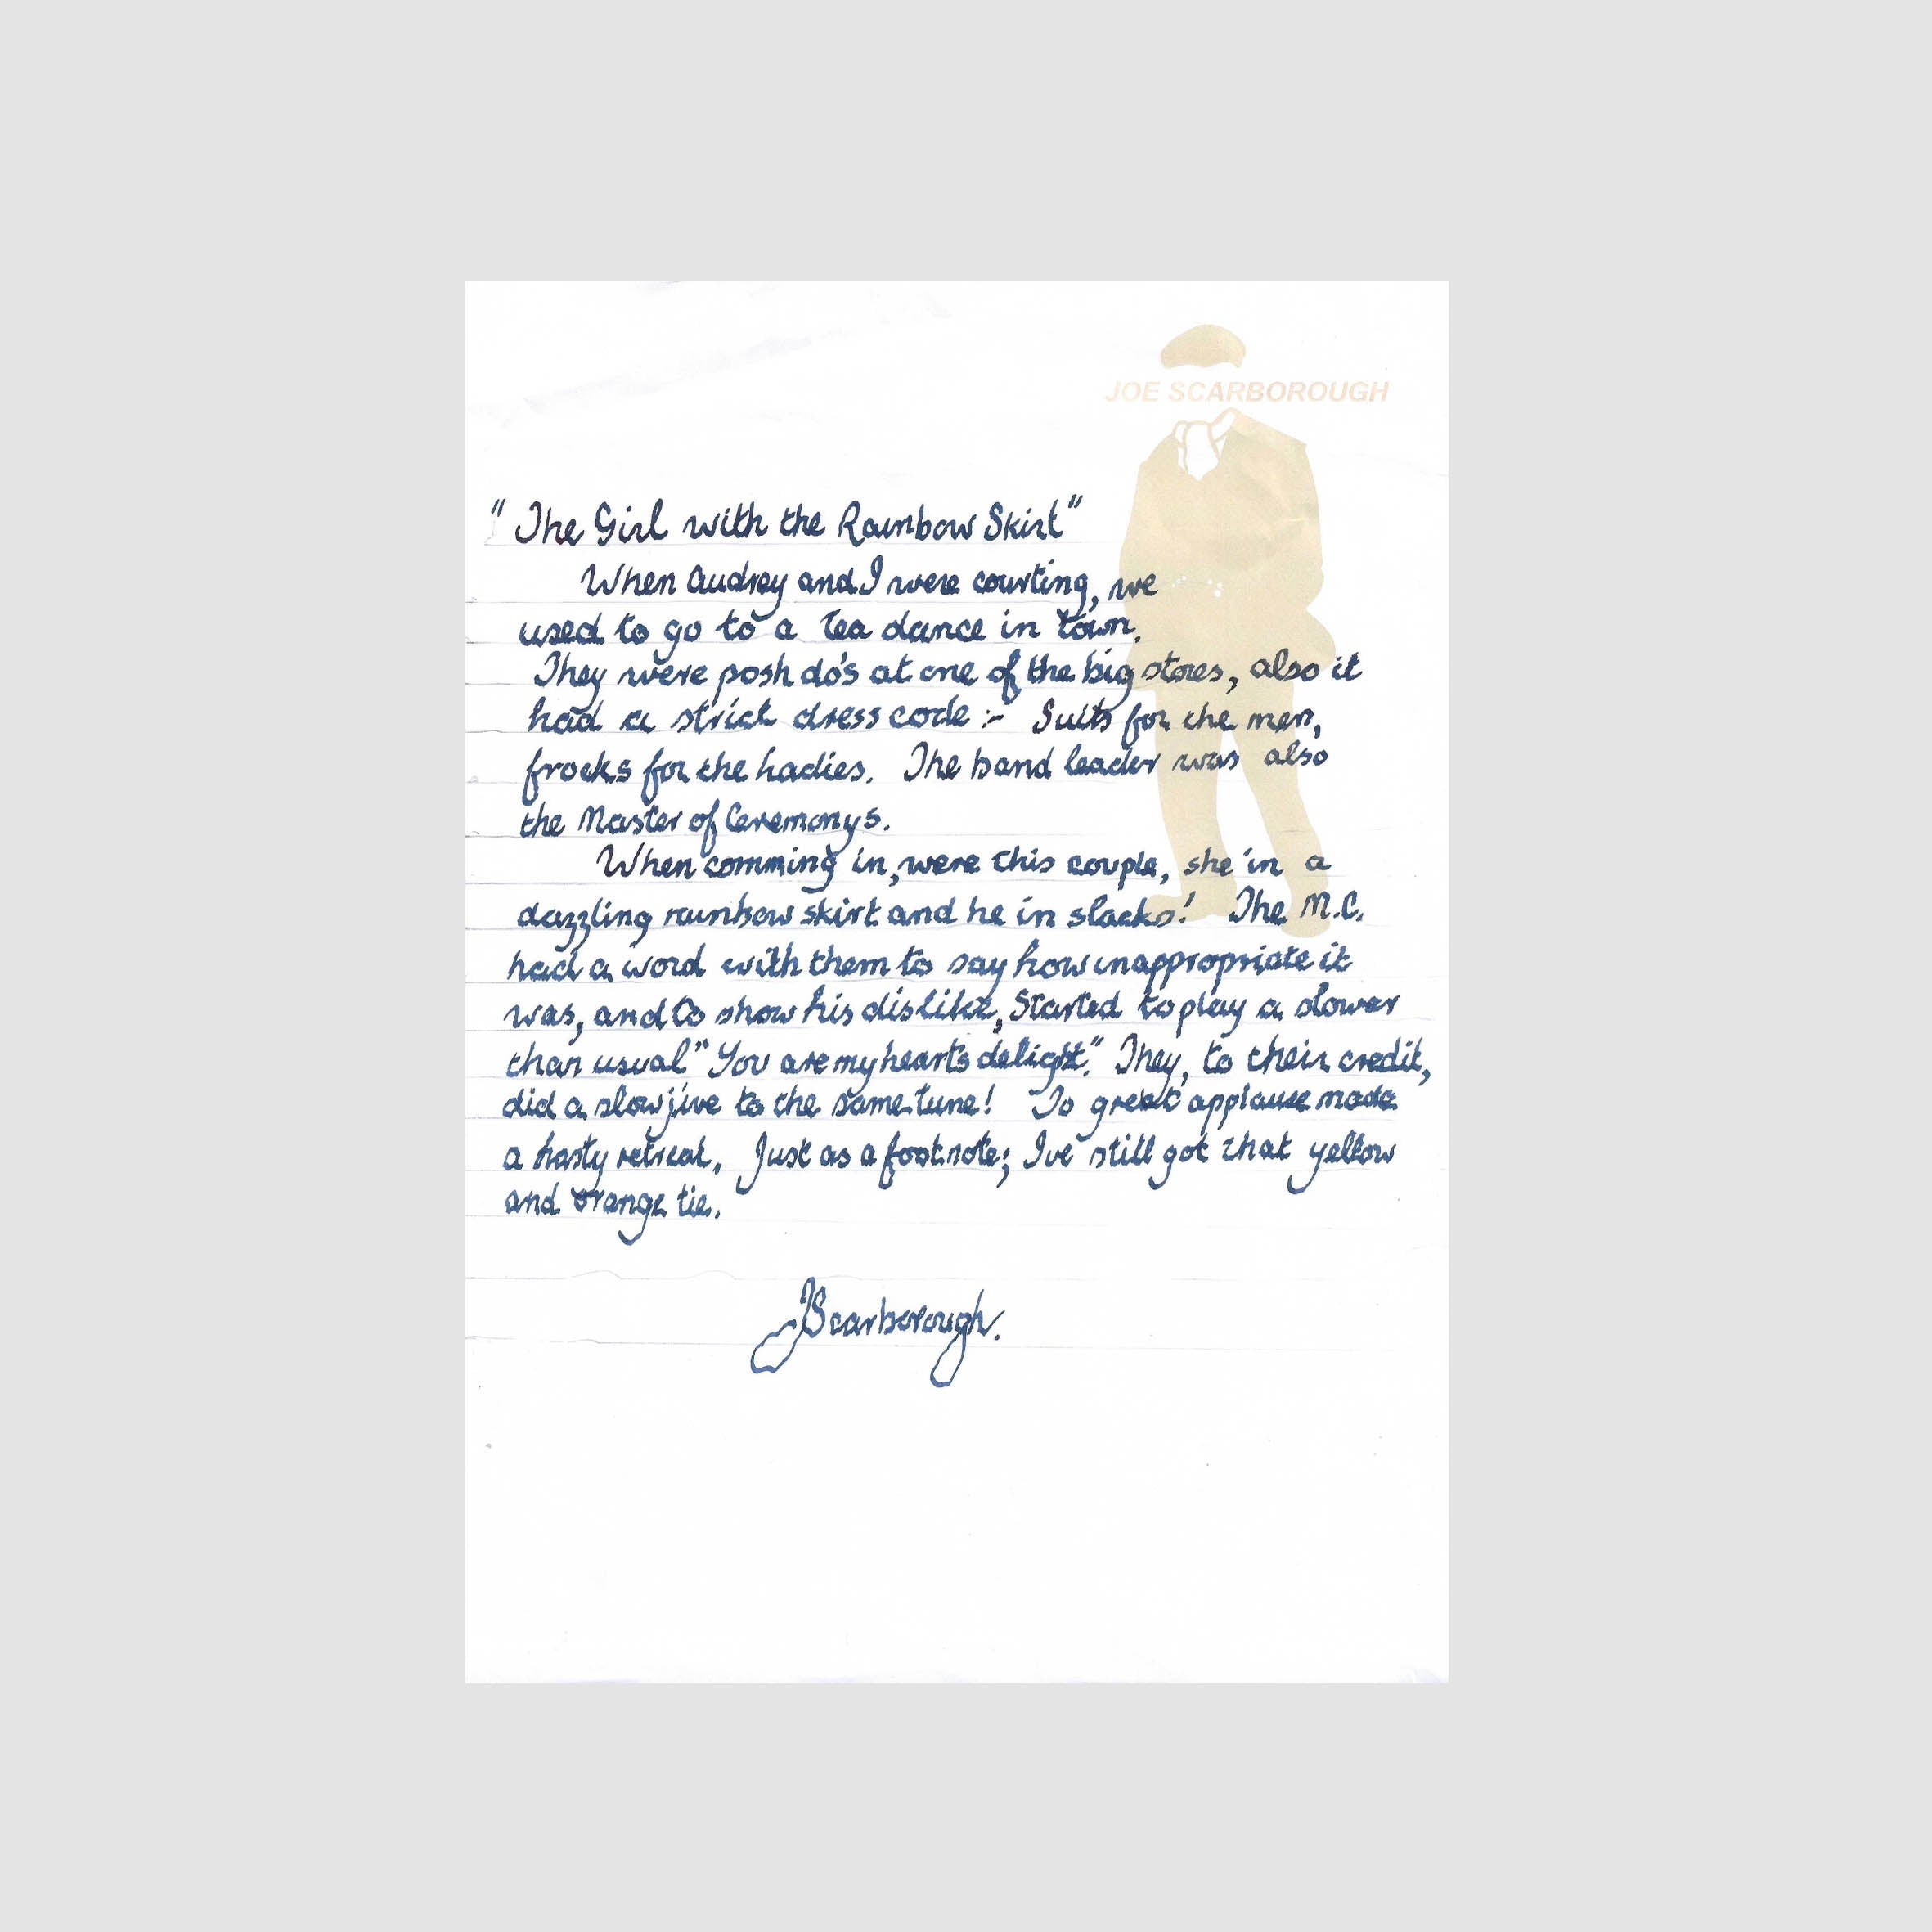 JOE SCARBOROUGH
"The Girl with the Rainbow Skirt"
When Audrey and I were courting, we
used to go to a Tea dance in town.
They were posh do's at one of the big stores, also it
had a strict dress code :- Suits for the men,
frocks for the Ladies. The band leader was also
the Master of Ceremonys.
When comming in, were this couple, she in a
dazzling rainbow skirt and he in slacks! The M.C.
had a word with them to say how inappropriate it
was, and to show his dislike, Started to play a slower
than usual "You are my heart's delight". They, to their credit,
did a slow jive to the same tune! To great applause made
a hasty retreat. Just as a footnote; I've still got that yellow
and orange tie.
J Scarborough.